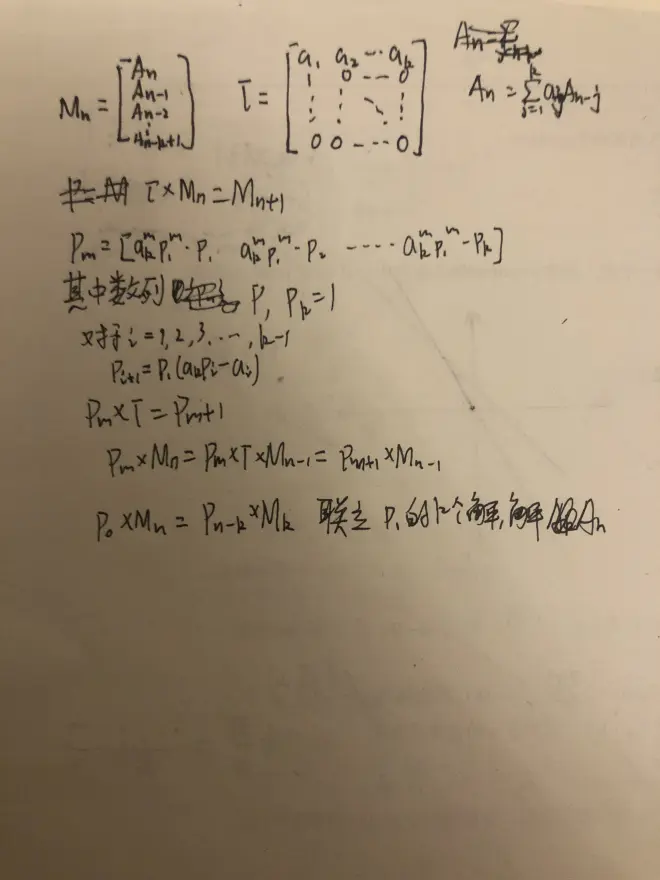 Mn = [An An-1 An-2 ⋮ An-k+1] T = [a1 a2 ⋯ ak 1 0 ⋯ 0 ⋮ ⋮ ⋱ ⋮ 0 0 ⋯ 0]
An = Σ(j=1..k) ajAn-j
T×Mn=Mn+1
Pm=[ak^m p1^m·p1 ak^m p1^m·p2 ⋯⋯ ak^m p1^m·pk]
其中数列 P, Pk=1
对于i=1,2,3,⋯,k-1
Pi+1=P1(akPi-ai)
Pm×T=Pm+1
Pm×Mn=Pm×T×Mn-1=Pm+1×Mn-1
P0×Mn=Pn-k×Mk 联立P1的k个解,解 An